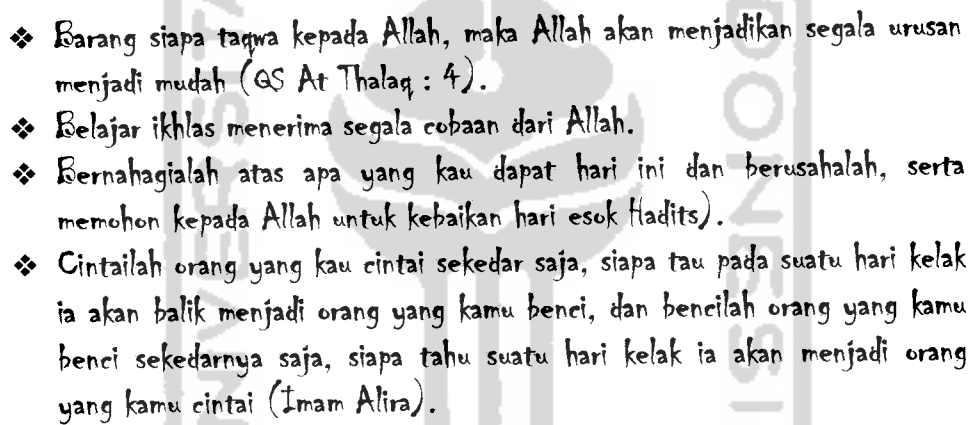 ❖ Barang siapa taqwa kepada Allah, maka Allah akan menjadikan segala urusan
menjadi mudah (QS At Thalaq : 4).
❖ Belajar ikhlas menerima segala cobaan dari Allah.
❖ Bernahagialah atas apa yang kau dapat hari ini dan berusahalah, serta
memohon kepada Allah untuk kebaikan hari esok Hadits).
❖ Cintailah orang yang kau cintai sekedar saja, siapa tau pada suatu hari kelak
ia akan balik menjadi orang yang kamu benci, dan bencilah orang yang kamu
benci sekedarnya saja, siapa tahu suatu hari kelak ia akan menjadi orang
yang kamu cintai (Imam Alira).